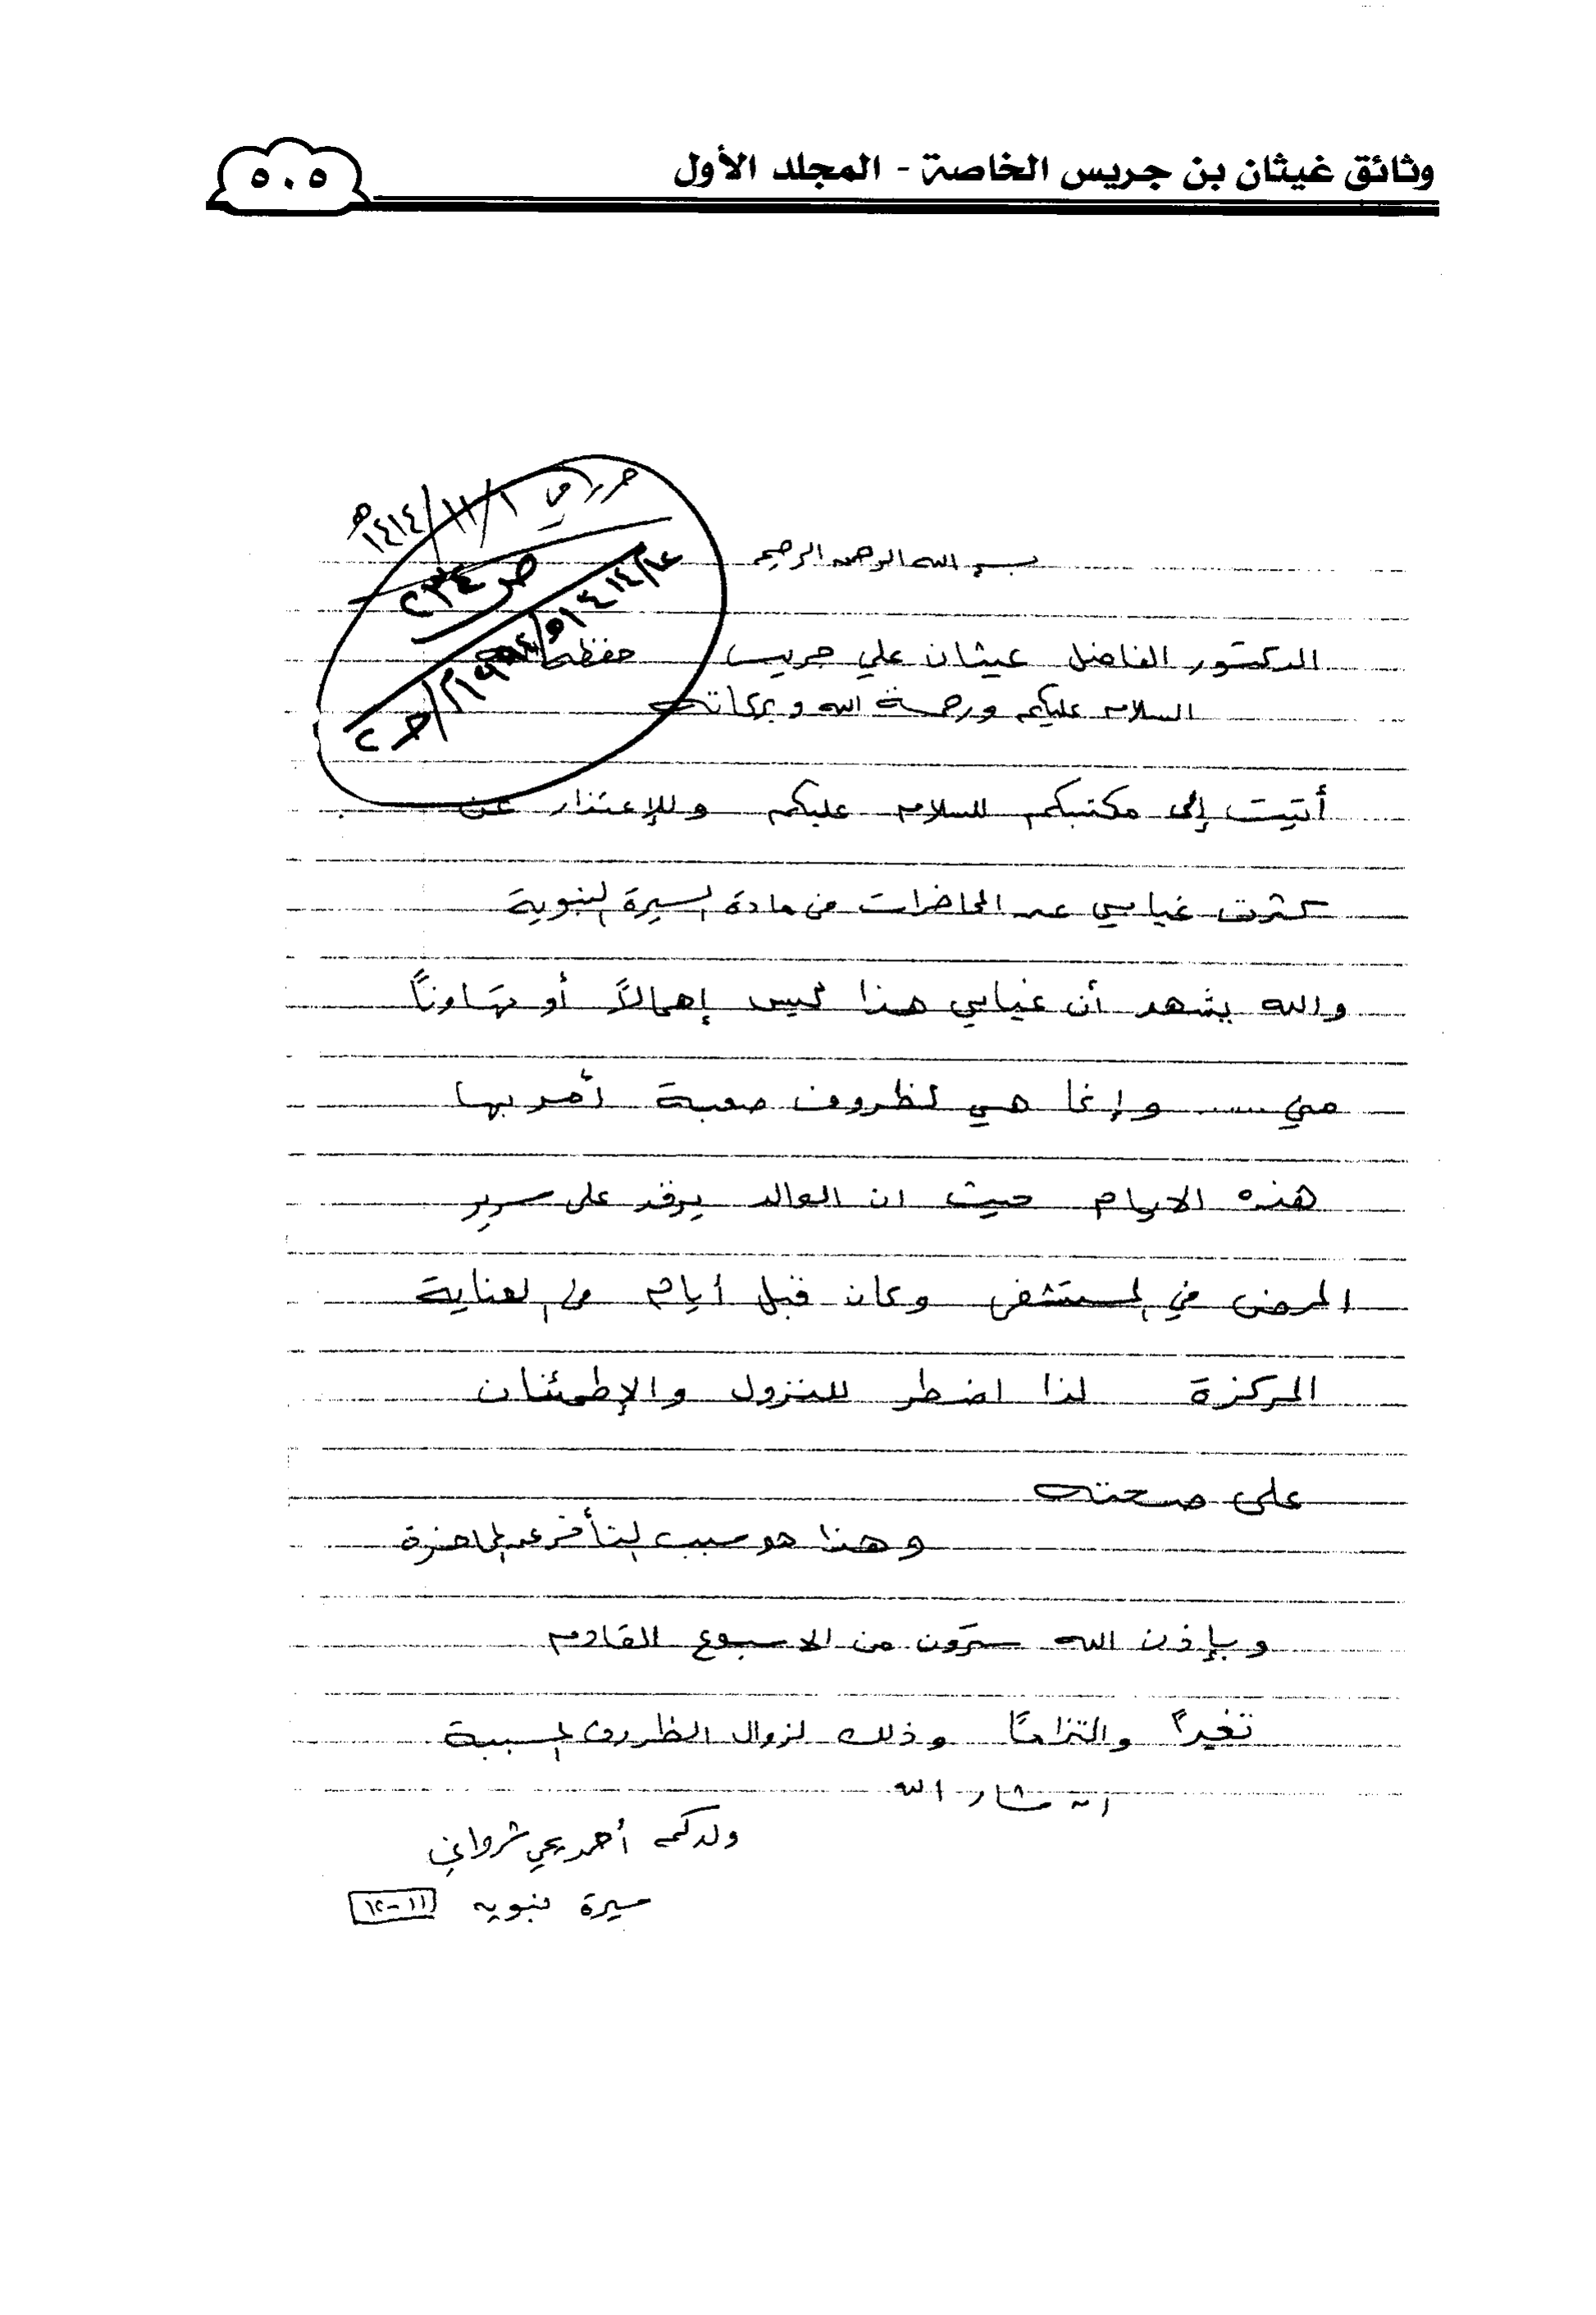 وثائق غيثان بن جريس الخاصة - المجلد الأول
٥٠٥
حرر في ١/١١/١٤١٤هـ
ص ٢٣٤
بسم الله الرحمن الرحيم
الدكتور الفاضل غيثان علي جريس حفظه الله
السلام عليكم ورحمة الله وبركاته
أتيت إلى مكتبكم للسلام عليكم وللإعتذار عن
كثرت غيابي عن المحاضرات في مادة السيرة النبوية
والله يشهد أن غيابي هذا ليس إهمالاً أو تهاوناً
مني ..... وإنما هي لظروف صعبة أمر بها
هذه الايام حيث ان الوالد يرقد على سرير
المرض في المستشفى وكان قبل أيام في العناية
المركزة لذا اضطر للنزول والإطمئنان
على صحته
وهذا هو سبب التأخر عن المحاضرة
وبإذن الله سترون من الاسبوع القادم
تغيراً والتزاماً وذلك لزوال الظروف المسببة
ان شاء الله
ولدكم أحمد يحي شرواني
سيرة نبويه ١١-١٢